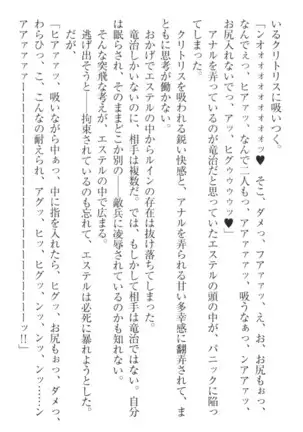 いるクリトリスに吸いつく。
「ンオォオォオォオォオッ♥　そこ、ダメっ、フアァァッ、え、お、お尻もぉっ、
なんでぇっ、ヒアァッ、なんで二人もっ、アァァァァッ、吸うなぁっ、ンアアァッ、
お尻入れないでっ、アッ、ヒグゥウゥウゥッ♥」
アナルを弄っているのが竜治だと思っていたエステルの頭の中が、パニックに陥っ
てしまった。
クリトリスを吸われる鋭い快感と、アナルを弄られる甘い多幸感に翻弄されて、ま
ともに思考が働かない。
おかげでエステルの中からルインの存在は抜け落ちてしまった。
竜治しかいないのに、相手は複数だ。では、もしかして相手は竜治ではない。自分
は眠らされ、そのままどこか別の――敵兵に凌辱されているのかも知れない。
そんな突飛な考えが、エステルの中で広まる。
逃げ出そうと――拘束されているのも忘れて、エステルは必死に暴れようとした。
だが、
「ヒアァァッ、吸いながら中ぁっ、中に指を入れたら、ヒグッ、お尻もぉっ、ダメっ、
わらひっ、こ、こんなの耐えられ、アグッ、ヒッ、ヒグッ、ンッ、ンッ、ンッ……ン
アアァァァァーーーーーーーーーーーーッ!!」